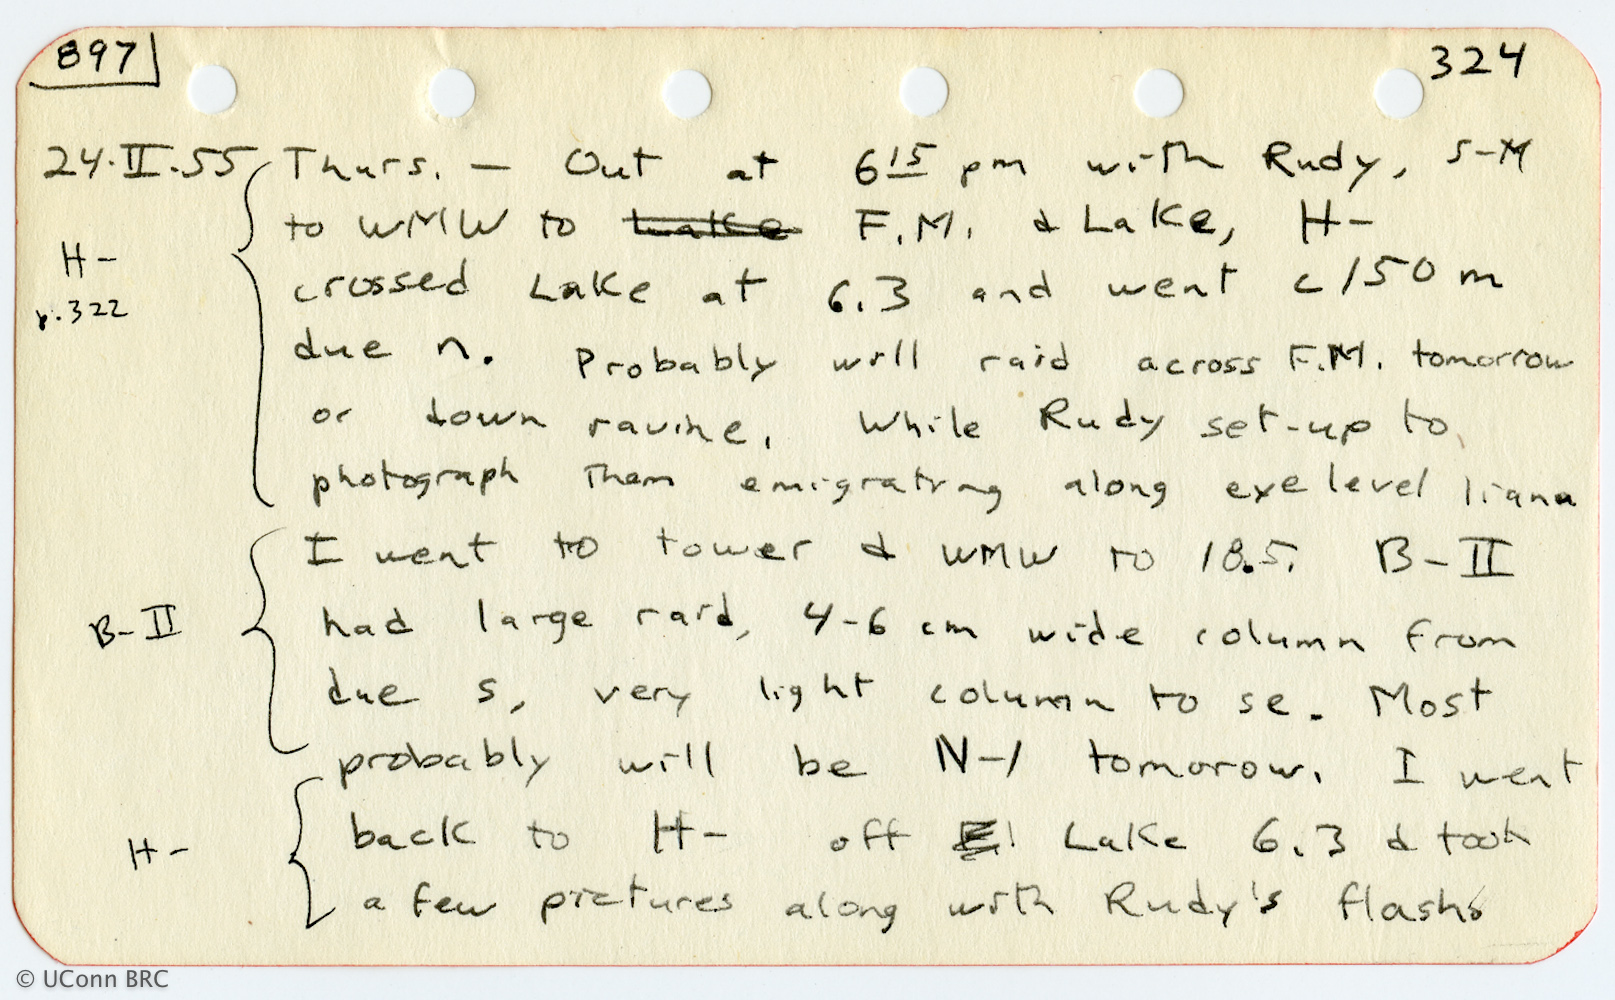 897
324
24.II.55 Thurs. — Out at 6 15 pm with Rudy, S-M
to WMW to Lake F.M. & Lake, H-
H-
crossed Lake at 6.3 and went c 150 m
p.322
due n. Probably will raid across F.M. tomorrow
or down ravine. While Rudy set-up to
photograph them emigrating along eye level liana
I went to tower & WMW to 18.5. B-II
B-II
had large raid, 4-6 cm wide column from
due s, very light column to se. Most
probably will be N-1 tomorow. I went
H-
back to H- off Lake 6.3 & took
a few pictures along with Rudy's flash
© UConn BRC